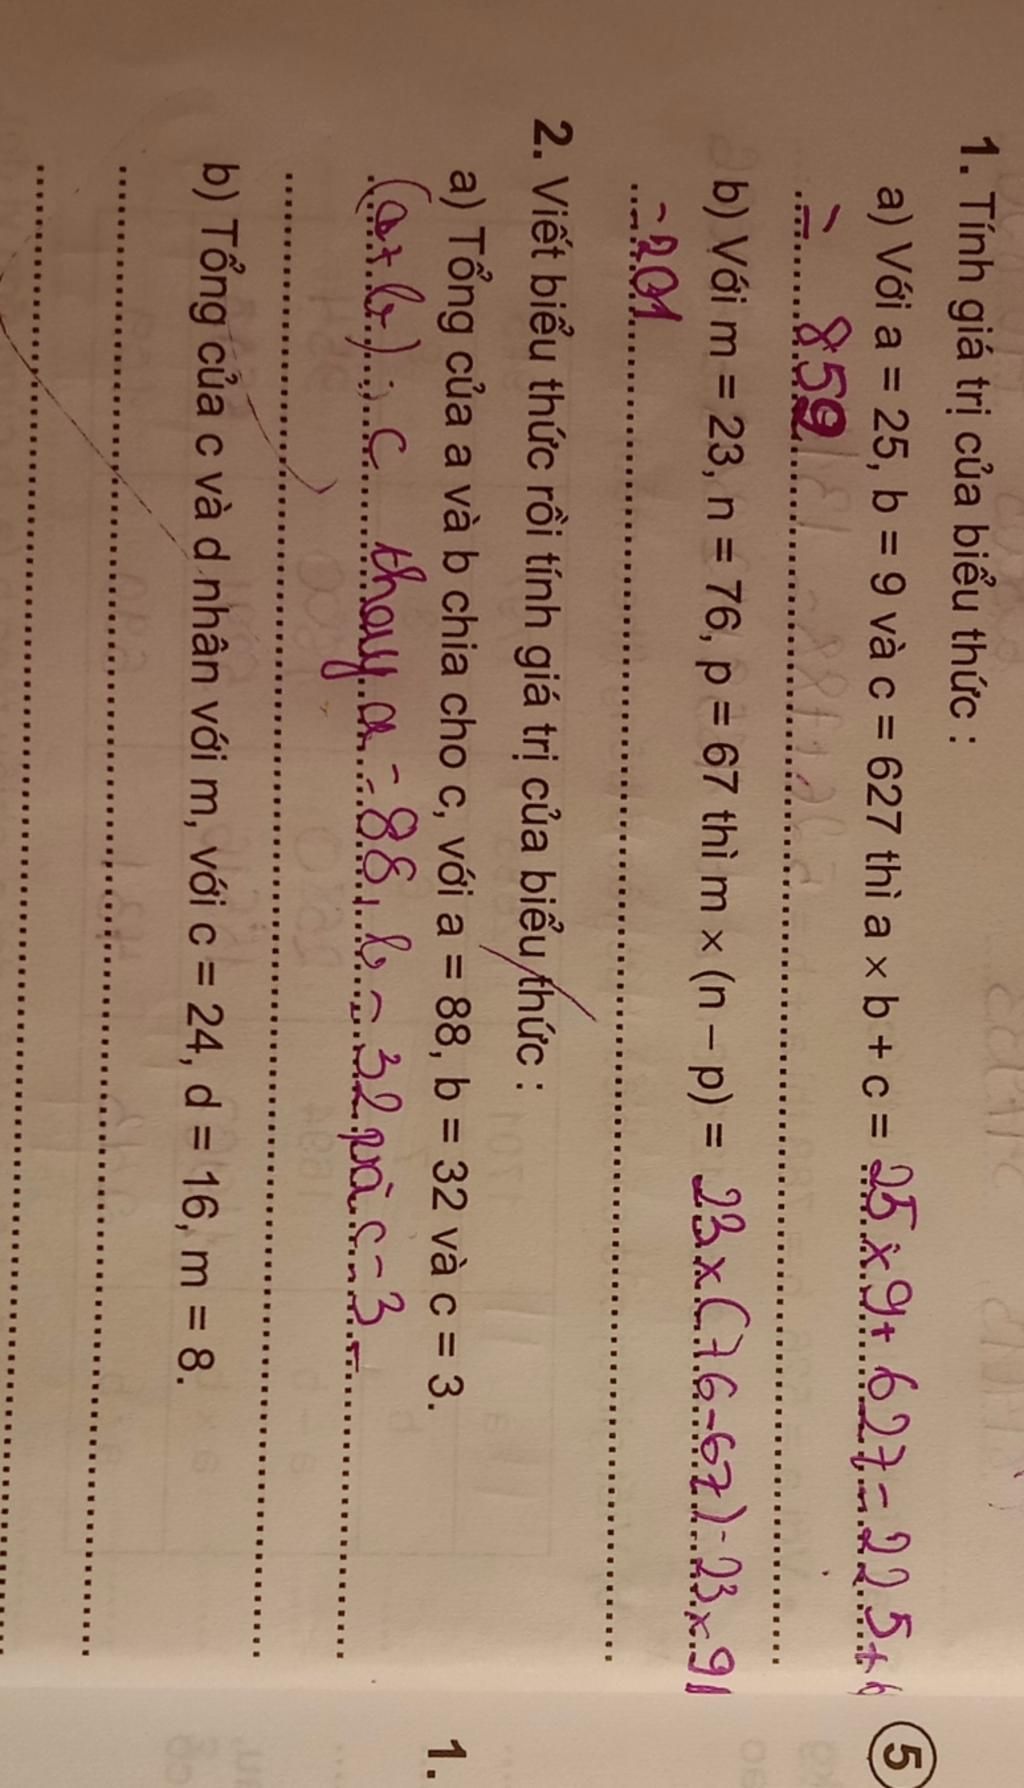 1. Tính giá trị của biểu thức :
a) Với a = 25, b = 9 và c = 627 thì a × b + c = 25 × 9 + 627 = 225 +
= 859
b) Với m = 23, n = 76, p = 67 thì m × (n – p) = 23 × (76 - 67) = 23 × 9
= 201
2. Viết biểu thức rồi tính giá trị của biểu thức :
a) Tổng của a và b chia cho c, với a = 88, b = 32 và c = 3.
(a + b) : c thay a = 88, b = 32 và c = 3
b) Tổng của c và d nhân với m, với c = 24, d = 16, m = 8.
5
1.